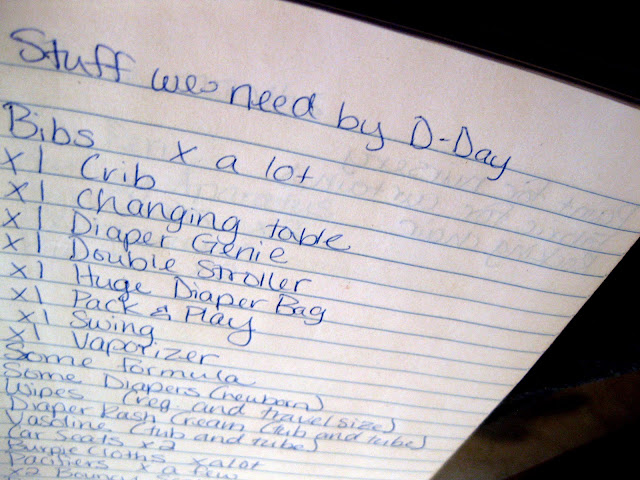 Stuff we need by D-Day
Bibs x a lot
x1 Crib
x1 Changing table
x1 Diaper Genie
x1 Double Stroller
x1 Huge Diaper Bag
x1 Pack & Play
x1 Swing
x1 Vaporizer
Some formula
Some Diapers (newborn)
Wipes (reg. and travel size)
Diaper Rash Cream (tub and tube)
Vasoline (tub and tube)
Car Seats x2
Burpie Cloths x alot
Pacifiers x a few
x2 Bouncy